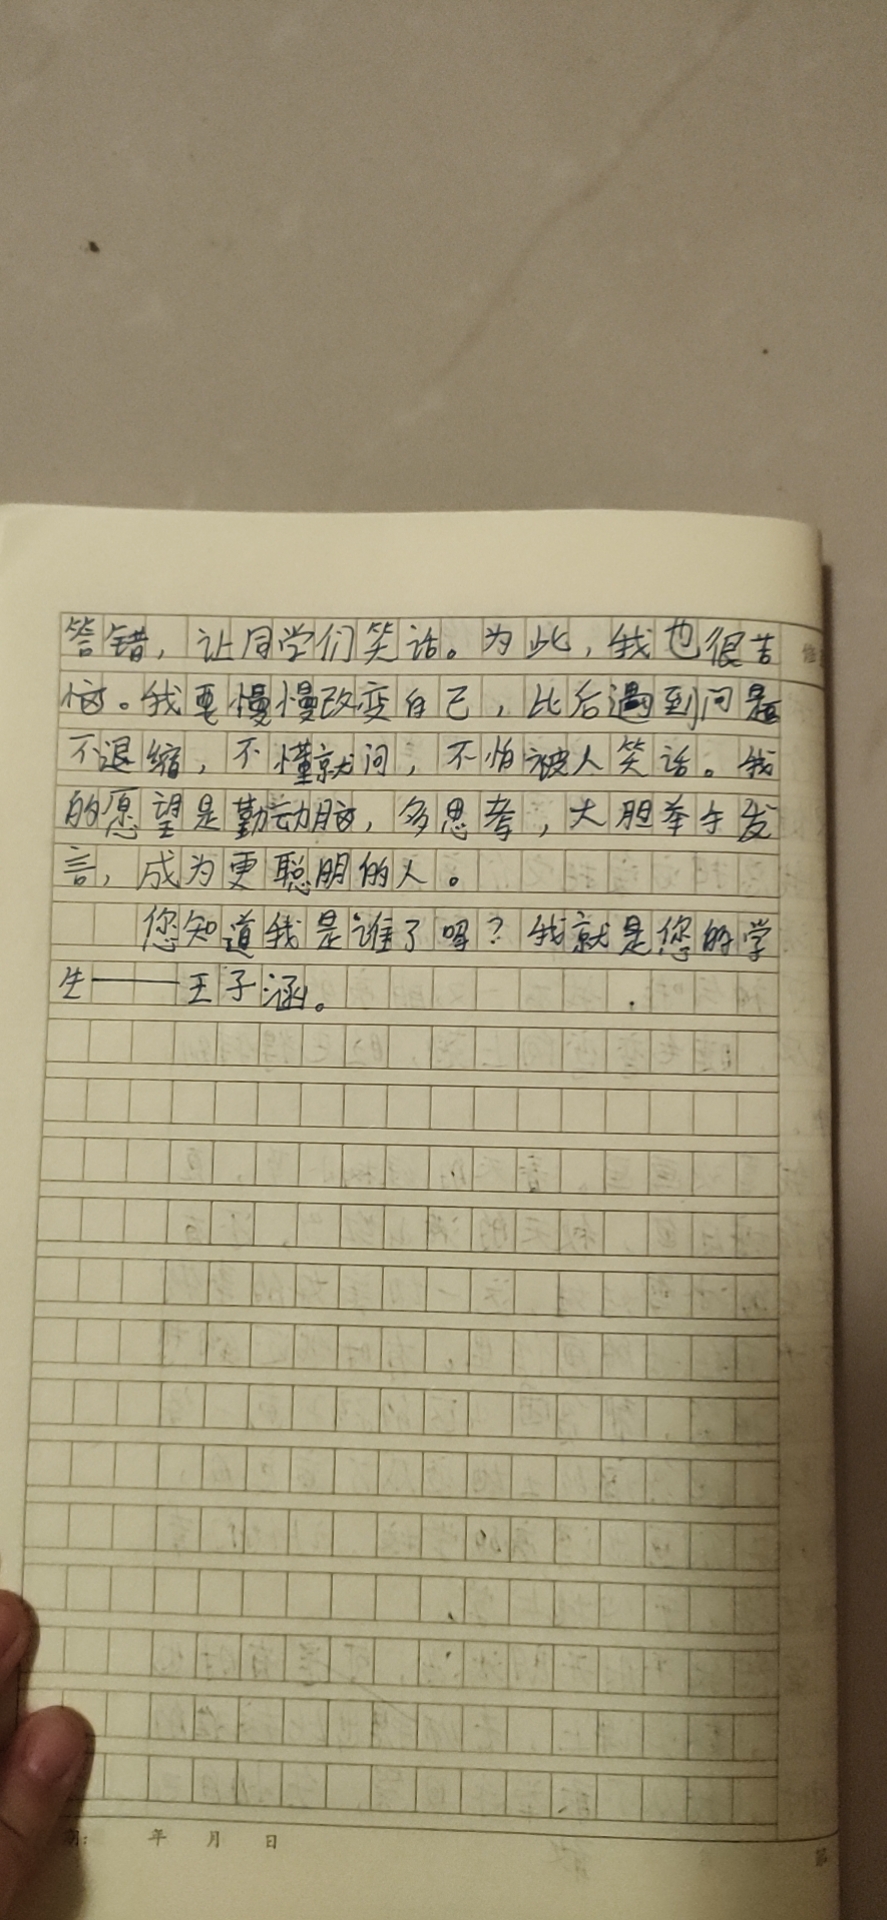 答错，让同学们笑话。为此，我也很苦
恼。我要慢慢改变自己，比后遇到问题
不退缩，不懂就问，不怕被人笑话。我
的愿望是勤动脑，多思考，大胆举手发
言，成为更聪明的人。
您知道我是谁了吗？我就是您的学
生——王子涵。
年 月 日